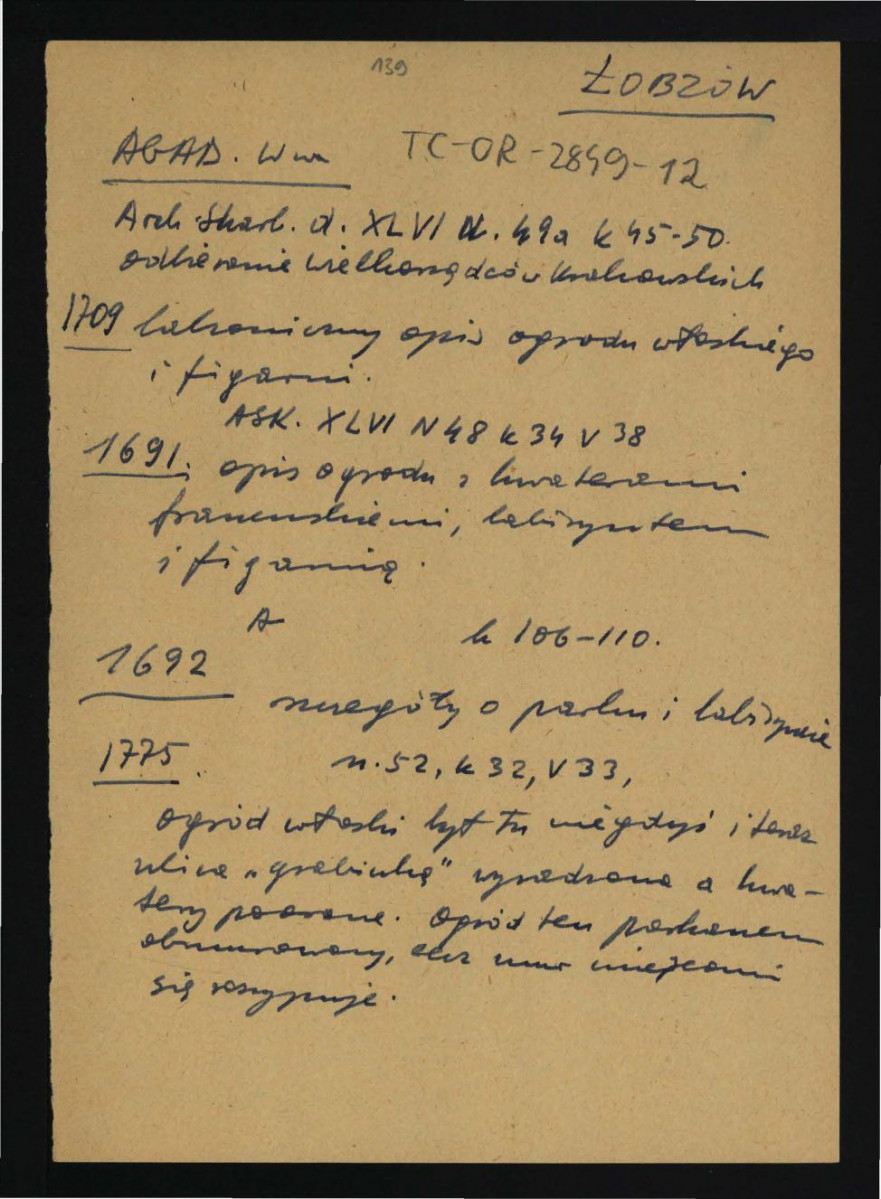 139
ŁOBZÓW
AGAD. Wwa TC-OR-2849-12
Arch. Skarb. d. XLVI N. 49a k 45-50.
odbieranie wielkorządców krakowskich
1709 lakoniczny opis ogrodu włoskiego
i figarni.
ASK. XLVI N 48 k 34 v 38
1691. opis ogrodu z kwaterami
francuskiemi, labiryntem
i figarnią.
A k 106-110.
1692
szczegóły o parku i labiryncie
1775. n. 52, k 32, v 33,
ogród włoski był tu niegdyś i teraz
ulica „grabinką" wysadzona a kwa-
tery poorane. Ogród ten parkanem
obmurowany, lecz mur miejscami
się rozsypuje.